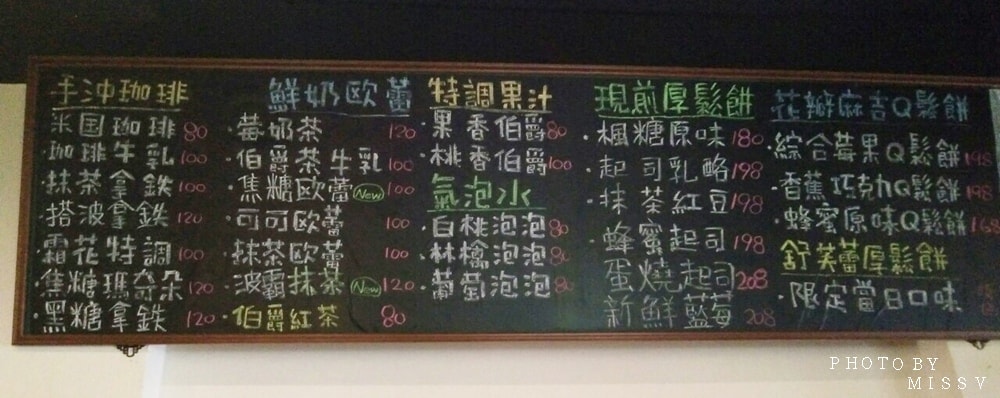 手沖珈琲
米国珈琲 80
珈琲牛乳 100
抹茶拿鉄 100
·搭波拿鉄 120
·霜花特調 100
·焦糖瑪奇朵 120
·黑糖拿鉄 120
鮮奶欧蕾
·莓奶茶 120
·伯爵茶牛乳 100
·焦糖欧蕾 New 100
·可可欧蕾 100
·抹茶欧蕾 100
·波霸抹茶 New 120
·伯爵紅茶 80
特調果汁
·果香伯爵 80
·桃香伯爵 100
氣泡水
·白桃泡泡 80
·林檎泡泡 80
·葡萄泡泡 80
現煎厚鬆餅
·楓糖原味 180
·起司乳酪 198
·抹茶紅豆 198
·蜂蜜起司 198
蛋燒起司 208
新鮮藍莓 208
花瓣麻吉Q鬆餅
·綜合莓果Q鬆餅 198
·香蕉巧克力Q鬆餅 198
·蜂蜜原味Q鬆餅 168
舒芙蕾厚鬆餅
·限定當日口味
PHOTO BY
MISSV